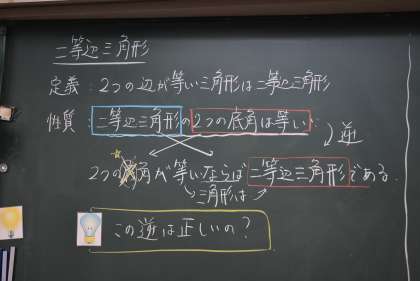 二等辺三角形
定義：2つの辺が等しい三角形は二等辺三角形
性質：二等辺三角形の2つの底角は等しい
逆
2つの角が等しいならば二等辺三角形である.
三角形は
この逆は正しいの？